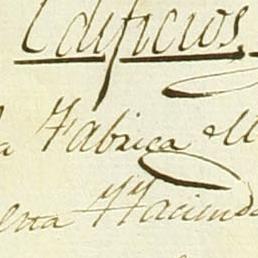 Edificios,
la Fabrica
esta Hacienda